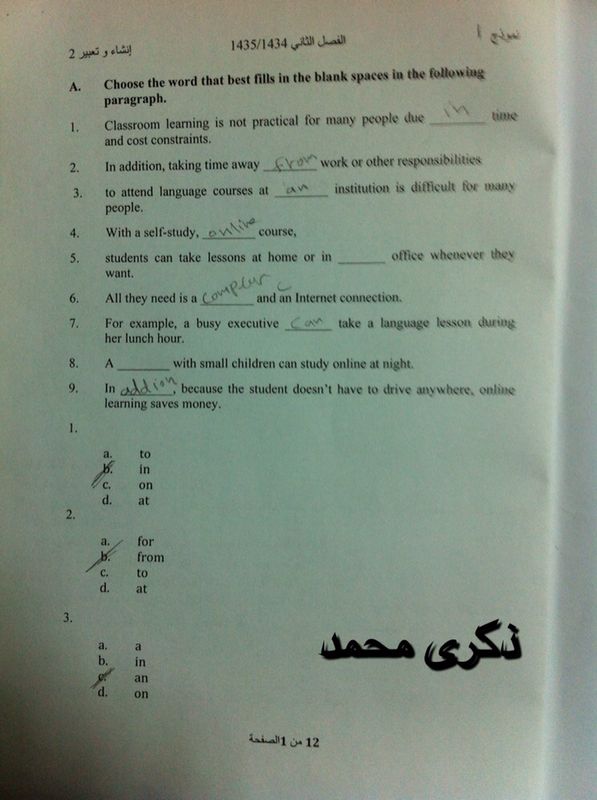 نموذج أ
الفصل الثاني 1435/1434
إنشاء و تعبير 2
A. Choose the word that best fills in the blank spaces in the following
paragraph.
1. Classroom learning is not practical for many people due in time
and cost constraints.
2. In addition, taking time away from work or other responsibilities
3. to attend language courses at an institution is difficult for many
people.
4. With a self-study, online course,
5. students can take lessons at home or in ______ office whenever they
want.
6. All they need is a compleur and an Internet connection.
7. For example, a busy executive can take a language lesson during
her lunch hour.
8. A ______ with small children can study online at night.
9. In addion, because the student doesn't have to drive anywhere, online
learning saves money.
1.
a. to
b. in
c. on
d. at
2.
a. for
b. from
c. to
d. at
3.
a. a
b. in
c. an
d. on
ذكرى محمد
12 من 1الصفحة